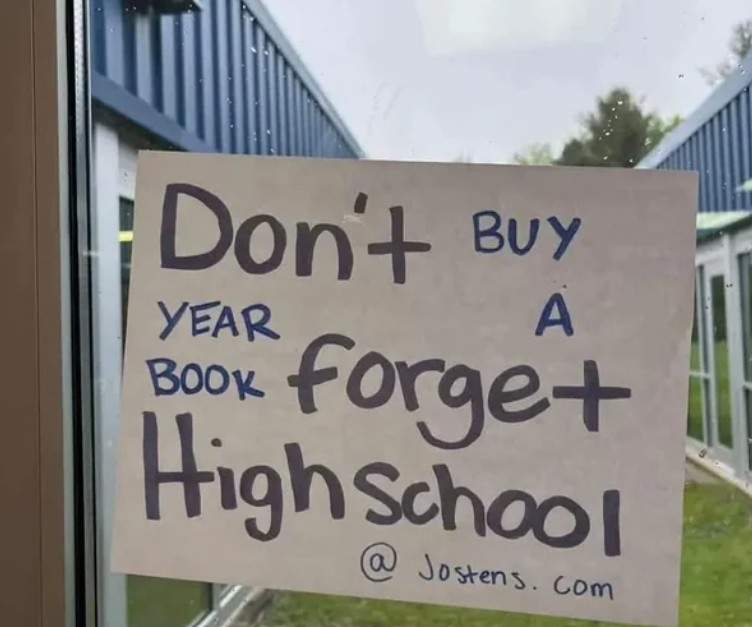 Don't BUY
YEAR A
BOOK forget
High school
@ Jostens.com